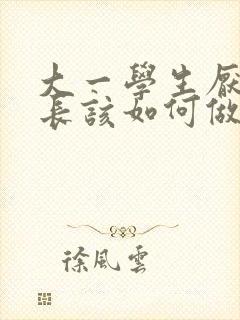 大一學生厭
長該如何做
徐風雲